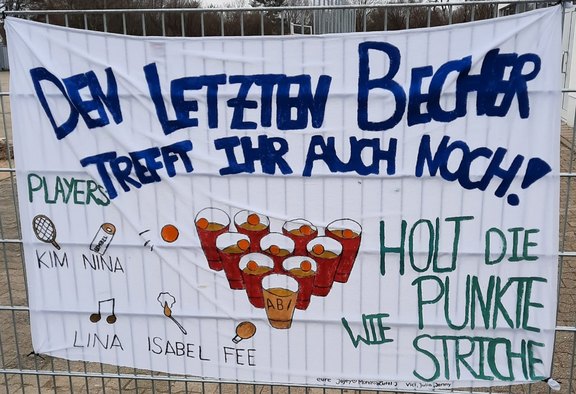 DEN LETZTEN BECHER
TREFFT IHR AUCH NOCH!
PLAYERS
KIM NINA
LINA ISABEL FEE
ABI
HOLT DIE
PUNKTE
WIE
STRICHE
eure